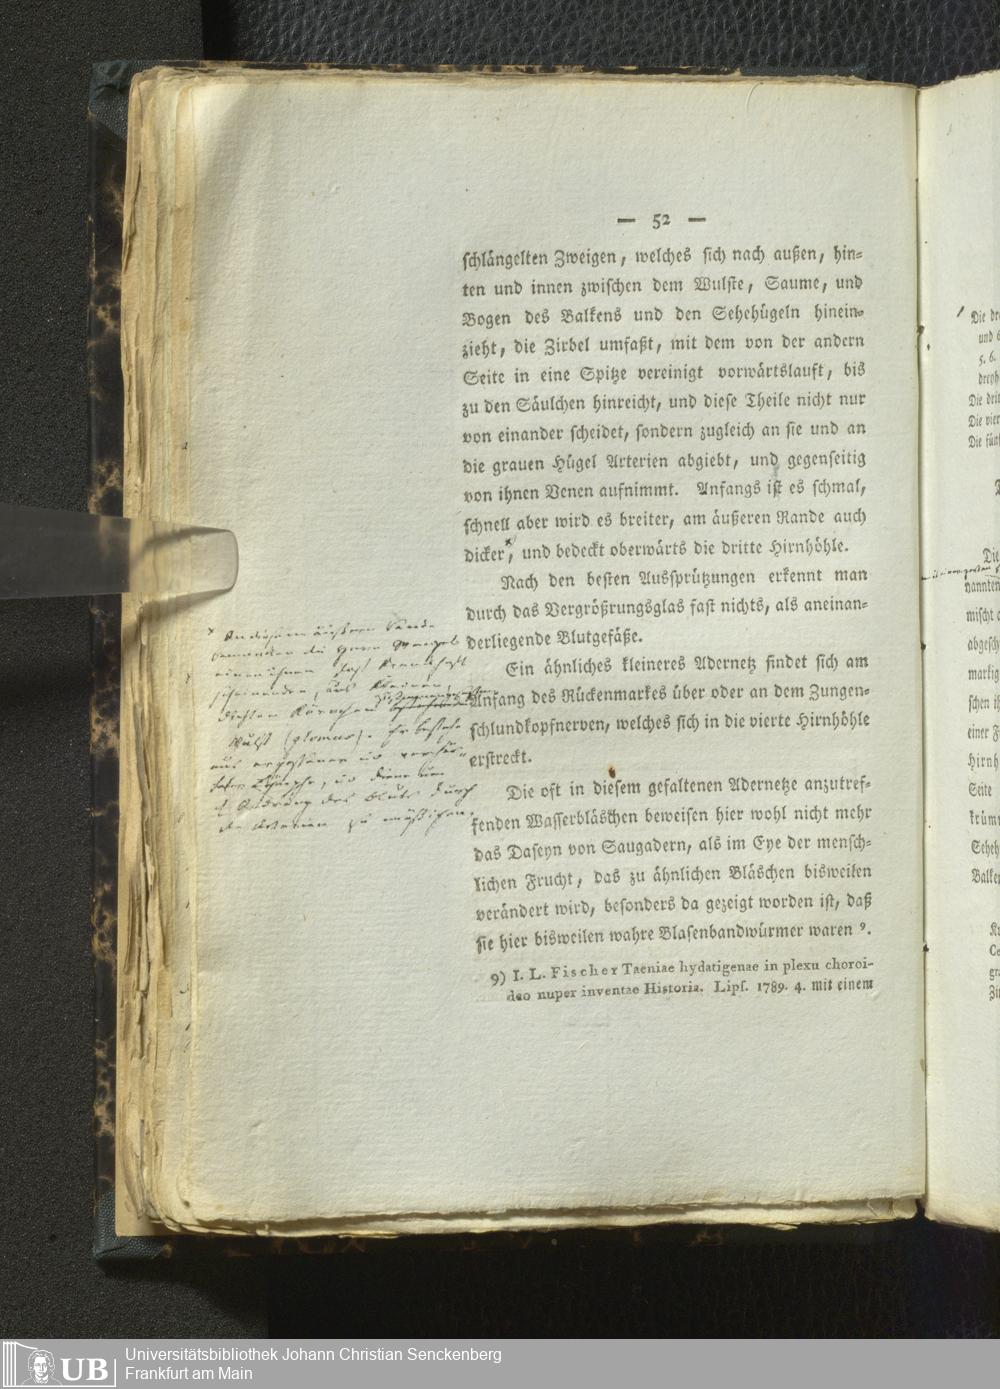 — 52 —
schlängelten Zweigen, welches sich nach außen, hin-
ten und innen zwischen dem Wulste, Saume, und
Bogen des Balkens und den Sehehügeln hinein-
zieht, die Zirbel umfaßt, mit dem von der andern
Seite in eine Spitze vereinigt vorwärtslauft, bis
zu den Säulchen hinreicht, und diese Theile nicht nur
von einander scheidet, sondern zugleich an sie und an
die grauen Hügel Arterien abgiebt, und gegenseitig
von ihnen Venen aufnimmt. Anfangs ist es schmal,
schnell aber wird es breiter, am äußeren Rande auch
dicker*, und bedeckt oberwärts die dritte Hirnhöhle.
Nach den besten Aussprützungen erkennt man
durch das Vergrößrungsglas fast nichts, als aneinan-
derliegende Blutgefäße.
Ein ähnliches kleineres Adernetz findet sich am
Anfang des Rückenmarkes über oder an dem Zungen-
schlundkopfnerven, welches sich in die vierte Hirnhöhle
erstreckt.
Die oft in diesem gefaltenen Adernetze anzutref-
fenden Wasserbläschen beweisen hier wohl nicht mehr
das Daseyn von Saugadern, als im Eye der mensch-
lichen Frucht, das zu ähnlichen Bläschen bisweilen
verändert wird, besonders da gezeigt worden ist, daß
sie hier bisweilen wahre Blasenbandwürmer waren ⁹.
9) I. L. Fischer Taeniae hydatigenae in plexu choroi-
deo nuper inventae Historia. Lipſ. 1789. 4. mit einem
* An diesem äußern Rande
dichten Körnchen
Wulst (glomus).
des Bluts durch
die Arterien zu mäßigen.
Die
und
5. 6.
Die
Die vier
Die fünf
Die
nannten
mischt
markig
einer
Hirnh
Seite
krüm
Seheh
Balken
UB
Universitätsbibliothek Johann Christian Senckenberg
Frankfurt am Main